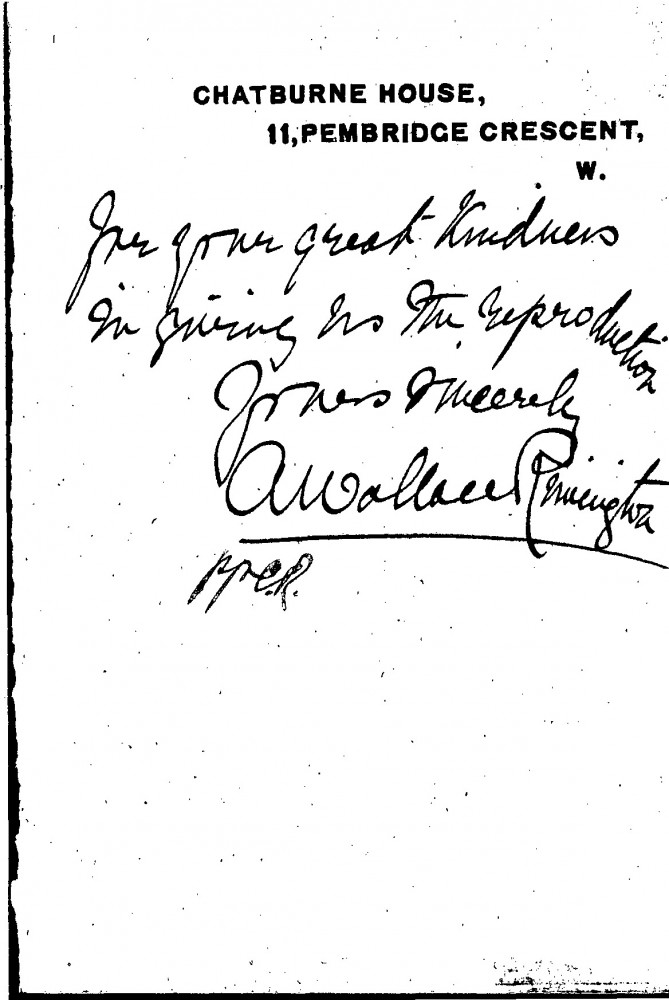 CHATBURNE HOUSE,
11, PEMBRIDGE CRESCENT,
W.
for your great kindness
in giving us the reproduction
Yours sincerely
A Wallace Rimington
pp C.R.